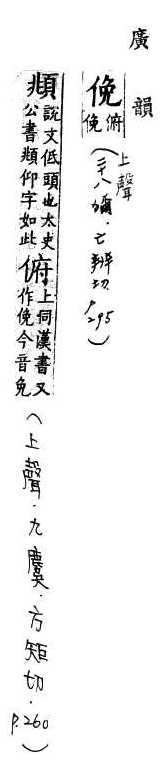 廣韻
俛俯俛(上聲二十八獮.亡辨切P.295)
頫說文低頭也太史公書頫仰字如此俯上同漢書又作俛今音免(上聲.九麌.方矩切.P.260)